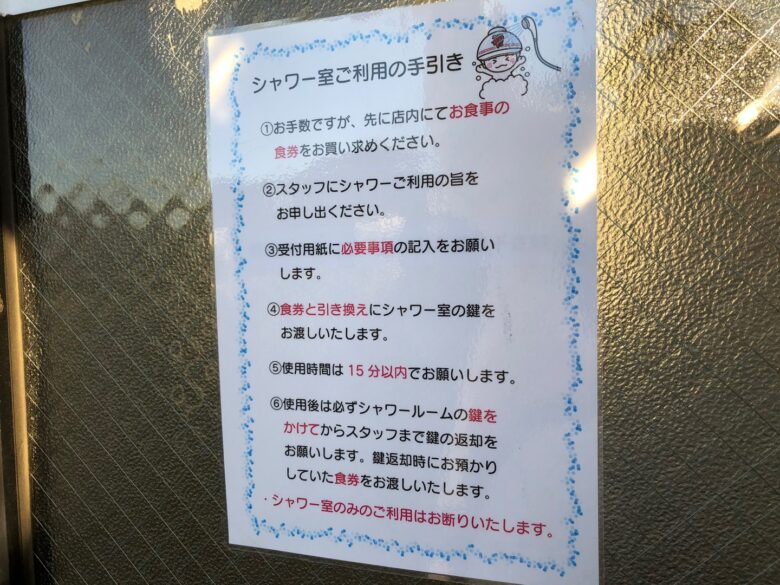 シャワー室ご利用の手引き
①お手数ですが、先に店内にてお食事の
食券をお買い求めください。
②スタッフにシャワーご利用の旨を
お申し出ください。
③受付用紙に必要事項の記入をお願い
します。
④食券と引き換えにシャワー室の鍵を
お渡しいたします。
⑤使用時間は15分以内でお願いします。
⑥使用後は必ずシャワールームの鍵を
かけてからスタッフまで鍵の返却を
お願いします。鍵返却時にお預かり
していた食券をお渡しいたします。
・シャワー室のみのご利用はお断りいたします。